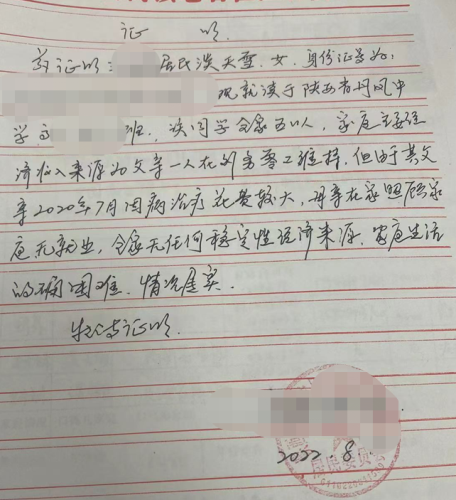 证 明
兹证明: 居民淡天雪, 女, 身份证号为:
现就读于陕西省丹凤中
学高 班, 该同学全家五口人, 家庭主要经
济收入来源为父亲一人在外务零工维持, 但由于其父
亲2020年7月因病治疗花费较大, 母亲在家照顾家
庭无就业, 全家无任何稳定性经济来源, 家庭生活
的确困难, 情况属实.
特此证明.
2022 8
居民委员会